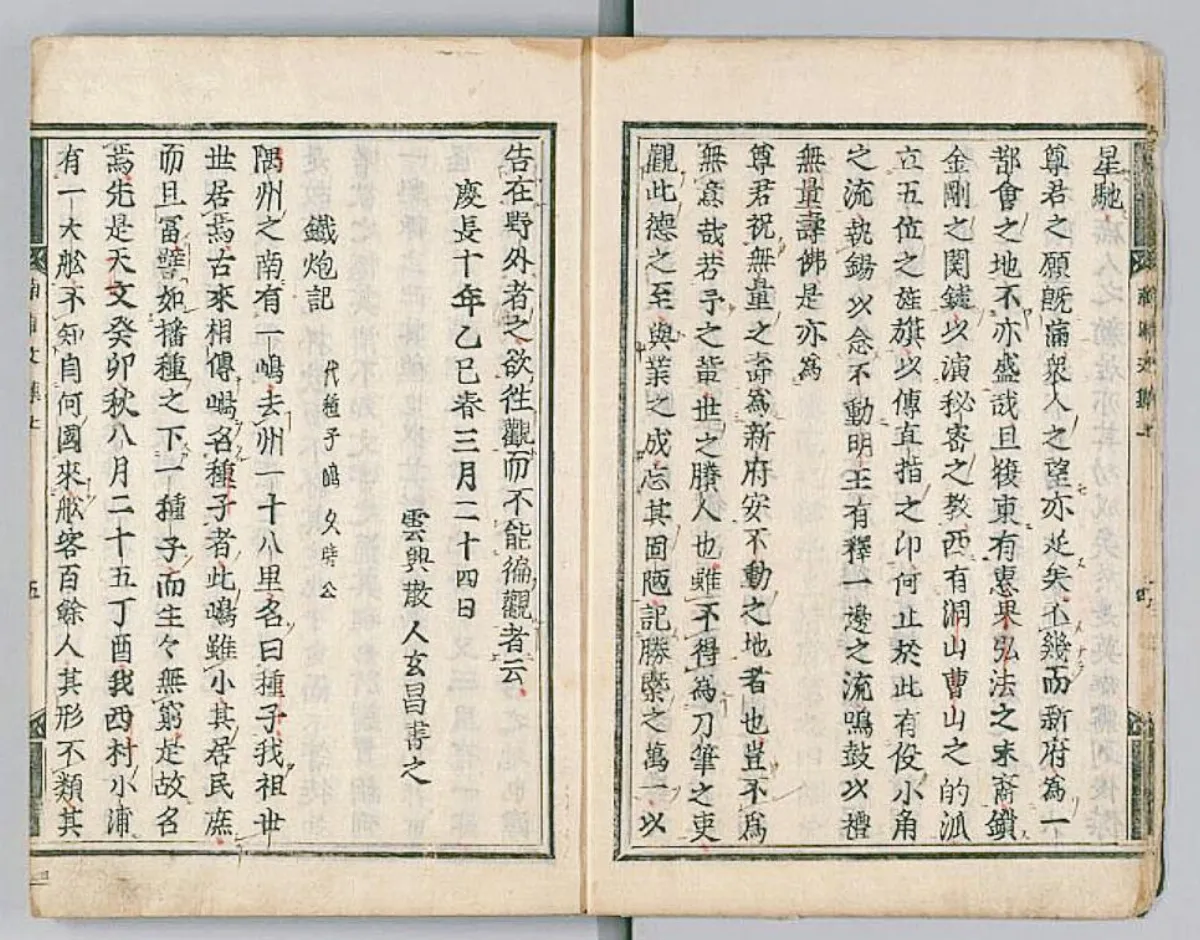 星馳
尊君之願既滿衆人之望亦足矣不幾而新府為一
都會之地不亦盛哉且復東有惠果弘法之末裔鎖
金剛之関鑰以演秘密之教西有洞山曹山之的派
立五位之旌旗以傳直指之印何止於此有役小角
之流執錫以念不動明王有釋一邊之流鳴鼓以禮
無量壽佛是亦為
尊君祝無量之壽為新府安不動之地者也豈不為
無意哉若予之輩世之賸人也雖不得為刀筆之吏
觀此德之至與業之成忘其固陋記勝槩之萬一以
告在野外者之欲徃觀而不能徧觀者云
慶長十年乙巳春三月二十四日
雲興散人玄昌書之
鐵炮記 代種子嶋久時公
隅州之南有一嶋去州一十八里名曰種子我祖世
世居焉古來相傳嶋名種子者此嶋雖小其居民庶
而且冨譬如播種之下一種子而生々無窮是故名
焉先是天文癸卯秋八月二十五丁酉我西村小浦
有一大舩不知自何國來舩客百餘人其形不類其
五